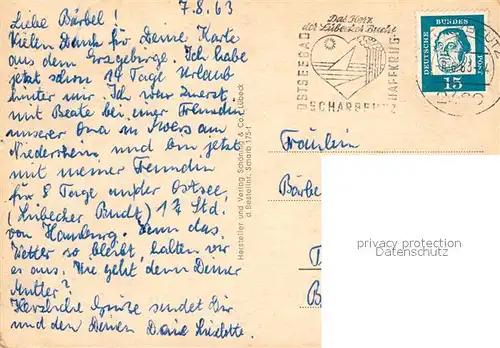 7.8.63
Liebe Bärbel!
Vielen Dank für Deine Karte
aus dem Erzgebirge. Ich habe
jetzt schon 14 Tage Urlaub
hinter mir. Ich war zuerst
mit Beate bei einer Freundin
unserer Oma in Moers am
Niederrhein, und bin jetzt
mit meiner Freundin
für 8 Tage an der Ostsee
(Lübecker Bucht) 1 ½ Std.
von Hamburg. Wenn das
Wetter so bleibt, halten wir
es aus. Wie geht's denn Deiner
Mutter?
Herzliche Grüße sendet Dir
und den Deinen Deine Liselotte.
Hersteller und Verlag Schöning & Co., Lübeck
d. Bestellnr. Scharb 1751
Das Herz
der Lübecker Bucht
OSTSEEBAD
SCHARBEUTZ
HAFFKRUG
DEUTSCHE BUNDES POST
15
Fräulein
Bärbe
B
privacy protection
Datenschutz